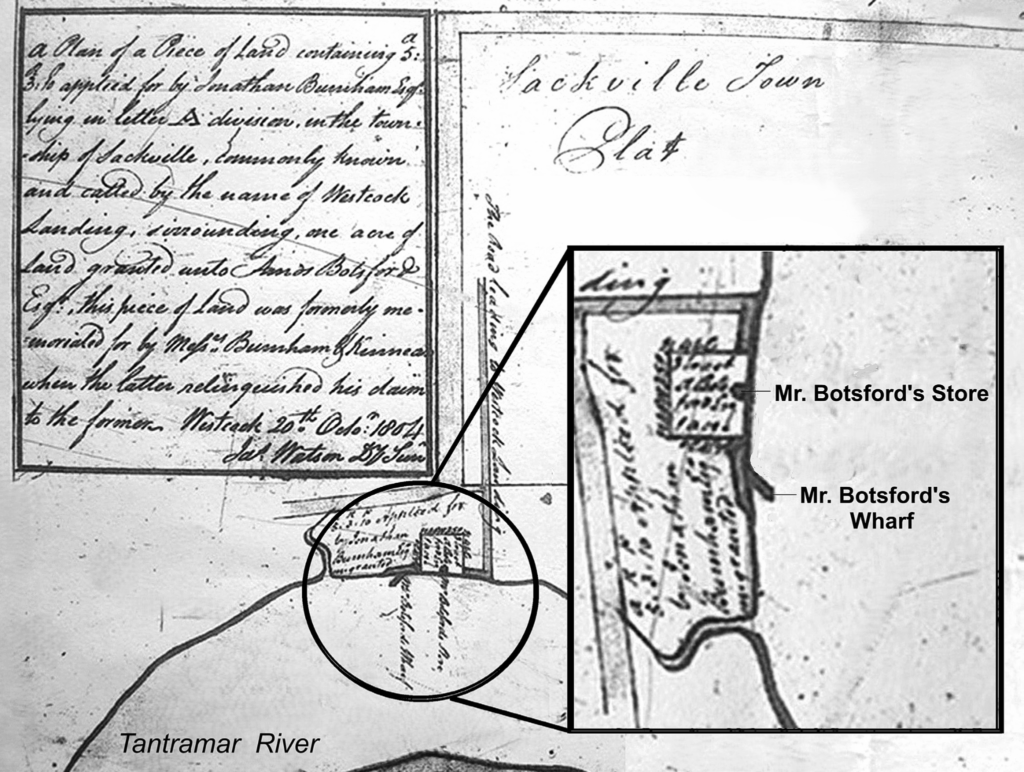 a Plan of a Piece of Land containing 5:
3.10 applied for by Jonathan Burnham Esqr
lying in letter A division, in the town-
-ship of Sackville, commonly known
and called by the name of Westcock
Landing, surrounding, one acre of
Land granted unto Amos Botsford
Esqr, this piece of Land was formerly me-
-moriated for by Messrs Burnham & Kinnear
when the latter relinquished his claim
to the former. Westcock 20th Octor 1804
Jas Watson Dy Surr
Sackville Town
Plat
The Road leading to Westcock Landing
A R P
5.3.10 applied for
by Jonathan
Burnham Esq
ungranted
Mr Botsfords Store
Mr Botsfords Wharf
Tantramar River
ding
A R P
5.3.10 applied for
by Jonathan
Burnham Esq
ungranted
Mr. Botsford's Store
Mr. Botsford's
Wharf